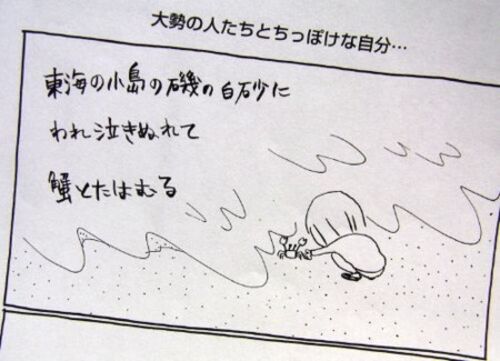 大勢の人たちとちっぽけな自分…
東海の小島の磯の白砂に
われ泣きぬれて
蟹とたはむる